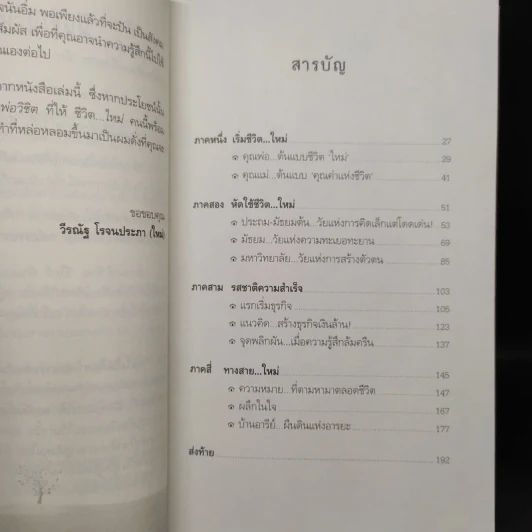 จนันอิ่ม พอเพียงแล้วที่จะปัน เป็นสังคม
สัมผัส เพื่อที่คุณอาจนำความรู้สึกนี้ไปใช้
นเองต่อไป
ากหนังสือเล่มนี้ ซึ่งหากประโยชน์นั้น
พ่อวิชิต ที่ให้ ชีวิต...ใหม่ คนนี้พร้อม
ำที่หล่อหลอมขึ้นมาเป็นผมดั่งที่คุณจะ
ขอขอบคุณ
วีรณัฐ โรจนประภา (ใหม่)
สารบัญ
ภาคหนึ่ง เริ่มชีวิต...ใหม่ 27
๑ คุณพ่อ...ต้นแบบชีวิต 'ใหม่' 29
๑ คุณแม่...ต้นแบบ 'คุณค่าแห่งชีวิต' 41
ภาคสอง หัดใช้ชีวิต...ใหม่ 51
๑ ประถม-มัธยมต้น...วัยแห่งการคิดเล็กแต่โดดเด่น! 53
๑ มัธยม...วัยแห่งความทะเยอทะยาน 69
๑ มหาวิทยาลัย...วัยแห่งการสร้างตัวตน 85
ภาคสาม รสชาติความสำเร็จ 103
๑ แรกเริ่มธุรกิจ 105
๑ แนวคิด...สร้างธุรกิจเงินล้าน! 123
๑ จุดพลิกผัน...เมื่อความรู้สึกล้มครืน 137
ภาคสี่ ทางสาย...ใหม่ 145
๑ ความหมาย...ที่ตามหามาตลอดชีวิต 147
๑ ผลึกในใจ 167
๑ บ้านอารีย์...ผืนดินแห่งอารยะ 177
ส่งท้าย 192